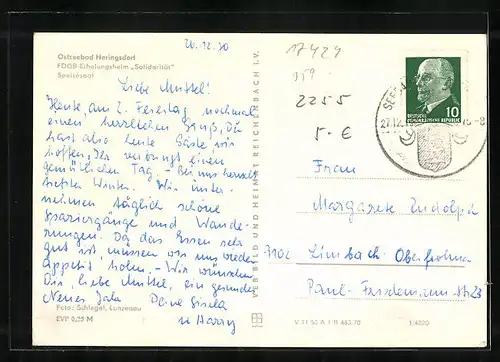 20.12.70
Ostseebad Heringsdorf
FDGB-Erholungsheim „Solidarität"
Speisesaal
Liebe Muttel!
Heute, am 2. Feiertag nochmal
einen herzlichen Gruß. Du
hast also heute Gäste, wir
hoffen, Ihr verbringt einen
gemütlichen Tag. - Bei uns herrscht
tiefster Winter. Wir unter-
nehmen täglich schöne
Spaziergänge und Wande-
rungen. Da das Essen sehr
gut ist, müssen wir uns wieder
Appetit holen. - Wir wünschen
Dir, liebe Muttel, ein gesundes
Neues Jahr Deine Gisela
u Harry
Foto: Schlegel, Lunzenau
EVP 0,25 M
VEB BILD UND HEIMAT REICHENBACH I. V.
V 11 50 A 1 B 463/70
1/4020
17424
2255
5.-€
DEUTSCHE
DEMOKRATISCHE REPUBLIK
10
27.12.
-8
Frau
Margarete
9102 Limbach-Oberfrohna
Paul-